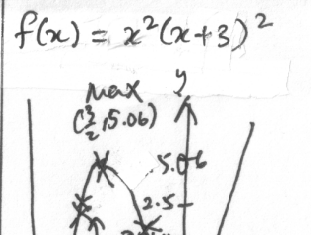 f(x) = x²(x+3)²
Max
y
(3/2, 5.06)
5.06
2.5